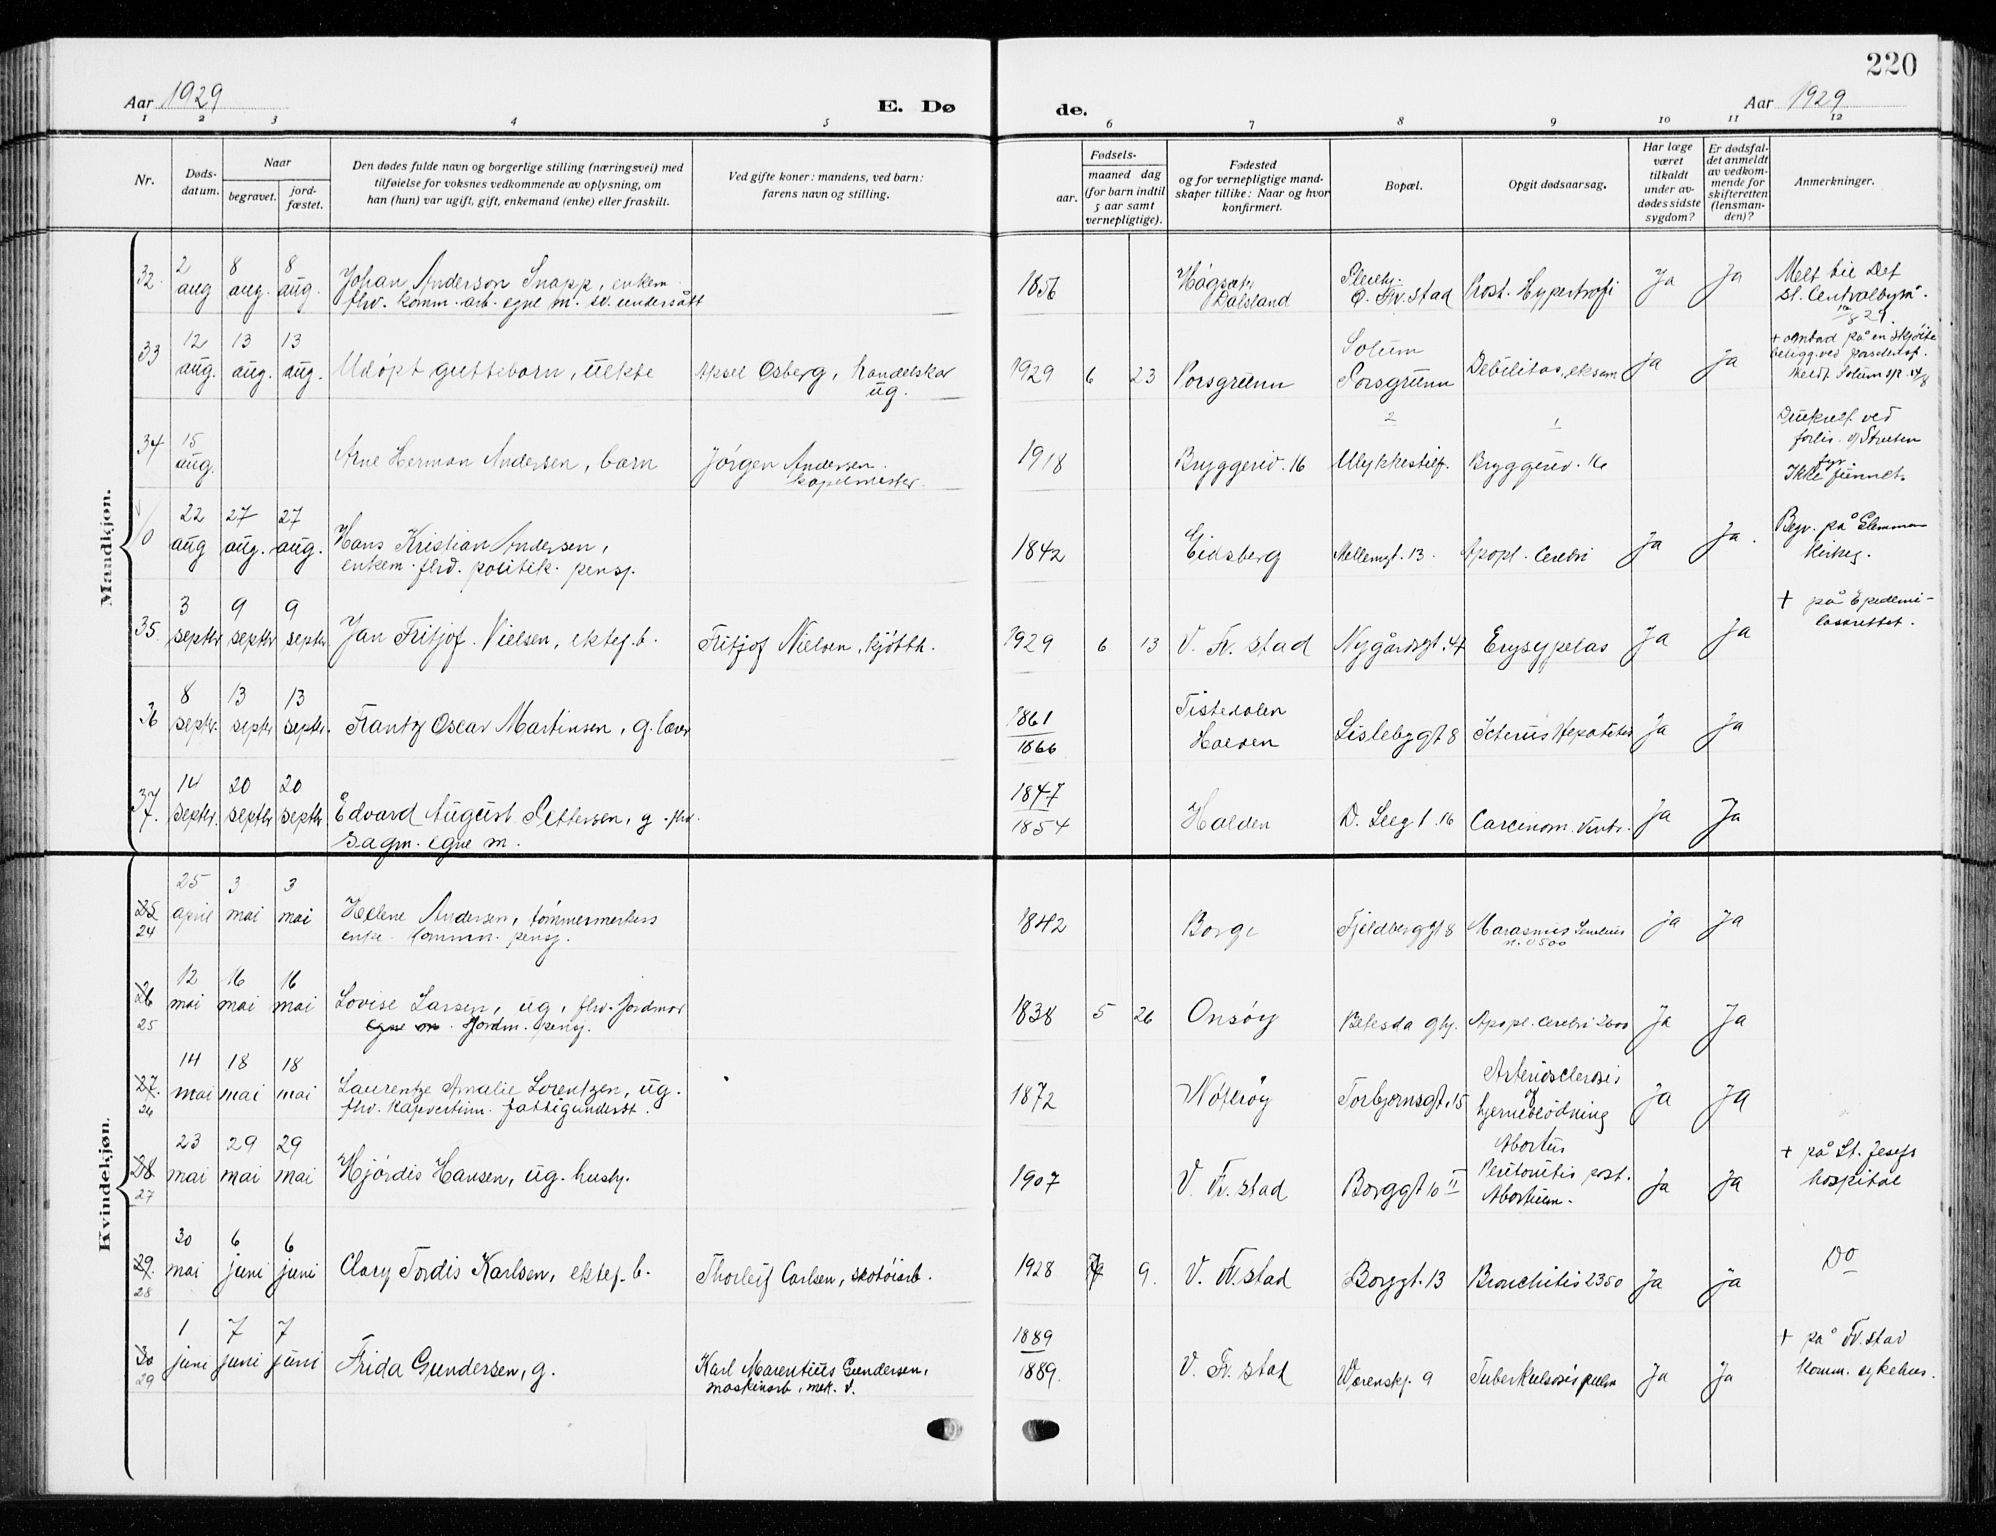 220
Aar 1929
E. Dø
de.
Aar 1929
1 2 3 4 5 6 7 8 9 10 11 12
Nr.
Døds-
datum.
Naar
begravet.
jord-
fæstet.
Den dødes fulde navn og borgerlige stilling (næringsvei) med
tilføielse for voksnes vedkommende av oplysning, om
han (hun) var ugift, gift, enkemand (enke) eller fraskilt.
Ved gifte koner: mandens, ved barn:
farens navn og stilling.
Fødsels-
aar.
maaned dag
(for barn indtil
5 aar samt
vernepligtige).
Fødested
og for vernepligtige mand-
skaper tillike: Naar og hvor
konfirmert.
Bopæl.
Opgit dødsaarsag.
Har læge
været
tilkaldt
under av-
dødes sidste
sygdom?
Er dødsfal-
det anmeldt
av vedkom-
mende for
skifteretten
(lensman-
den)?
Anmerkninger.
Mandkjøn.
32. 2 aug 8 aug. 8 aug.
Johan Anderson Snapp, enkem.
fhv. komm. arb. egne m. sv. undersått
1856
Dalsland
Ø. Fr.stad
Prost. Hypertrofi
Ja Ja
Melt til Det
st. Centralbyrå.
33 12 aug. 13 aug. 13 aug.
Udöpt guttebarn, uekte
Aksel Osberg, handelskar
ug.
1929 6 23
Porsgrunn
Solum
Porsgrunn
Debilitas
ja ja
34 15 aug.
Arne Herman Andersen, barn
Jörgen Andersen
kapelmester.
1918
Bryggeriv. 16
Ulykkestilf.
Bryggeriv. 16
ved
forlis
Ikke funnet.
0 22 aug 27 aug. 27 aug.
Hans Kristian Andersen,
enkem. fhv. politik. pensj.
1842
Eidsberg
Mellemgt. 13.
Apopl. Cerebri
Ja Ja.
Begr. på Glemmen
Kirkeg.
35. 3 septbr 9 septbr 9 septbr
Jan Fritjof Nielsen, ektef. b.
Fritjof Nielsen, kjötth.
1929 6 13
V. Fr. stad
Nygårdsgt. 47
Erysypelas
Ja Ja
+ på Epedemi-
lasarettet.
36 8 septbr. 13 septbr 13 septbr.
Frantz Oscar Martinsen, g.
1861
1866
Tistedalen
Halden
Lislebygt 8
Icterus Hepatitis
Ja Ja
37. 14 septbr. 20 septbr 20 septbr
Edvard August Pettersen, g. fhv.
sagm. egne m.
1847
1854
Halden
16
Carcinom. Ventr.
Ja Ja
Kvindekjøn.
25 24 25 april 3 mai 3 mai
Helene Andersen, tömmermerkers
enke. Commun. pensj.
1842
Borge
Fjeldberggt 8
Marasmus Senilis
ja Ja
26 25 12 mai 16 mai 16 mai
Lovise Larsen, ug, fhv. Jordmor
egne m. Jordm. pensj.
1838 5 26
Onsöy
Betesda
Apopl. Cerebri
Ja Ja
27. 26 14 mai 18 mai 18 mai
Laurentze Amalie Lorentzen, ug.
fhv. fattigunderst.
1872
Nötröy
Torbjörnsgt. 15
Arteriosclerosis
og
hjerneblödning
Ja Ja
28. 27 23 mai 29 mai 29 mai
Hjördis Hansen, ug. husby.
1907
V. Fr. stad
Borggt 10 II
Abortus
Peritonitis post.
Abortum.
Ja Ja
+ på St. Josefs
hospital
29. 28 30 mai 6 juni 6 juni
Clary Tordis Karlsen, ektef. b.
Thorleif Carlsen, skotöiarb.
1928 9.
V. Fr. stad
Borggt. 13
Bronchitis 2350
Ja Ja
Do
30 29 1 juni 7 juni 7 juni
Frida Gundersen, g.
Karl Marentius Gundersen,
maskinarb, mek. V.
1889
1889.
V. Fr. stad
Værenskj. 9
Tuberkulosis pulm
Ja Ja
+ på Fr. stad
Komm. sykehus.